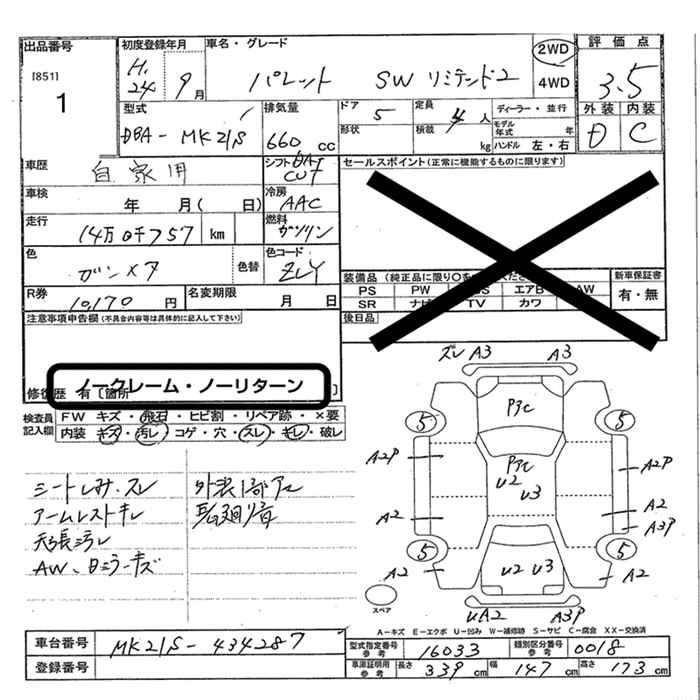 出品番号 初度登録年月 車名・グレード 2WD 評価点
[851] H. 24 9月 パレット SW リミテッド2 4WD 3.5
1 型式 排気量 ドア 5 定員 4人 ディーラー・並行 外装 内装
DBA- MK21S 660 cc 形状 積載 kg モデル年式 年 D C
ハンドル 左・右
車歴 自家用 シフト CVT セールスポイント(正常に機能するものに限ります)
車検 年 月( 日) 冷房 AAC
走行 14万0千757 km 燃料 ガソリン
色 ガンメタ 色替 色コード ZLY
装備品(純正品に限り○を ください) 新車保証書
R券 10,170 円 名変期限 月 日 PS PW エアB AW 有・無
SR ナビ TV カワ
注意事項申告欄(不具合内容等は具体的に記入して下さい) 後日品
ノークレーム・ノーリターン
修復歴 有[箇所 ]
検査員記入欄 FW キズ・飛石・ヒビ割・リペア跡・×要
内装 キズ・汚レ・コゲ・穴・スレ・キレ・破レ
シートしみ.スレ
アームレストキレ
天張汚レ
AW、日ミラーキズ
外装1部
ズレ A3 A3
5 Pﾃc 5
A2P Pﾃc A2P
U2 U3
A2 A2
A3P
5 5
A2 U2 U3 A2
スペア
UA2 A3P
A-キズ E-エクボ U-凹み W-補修跡 S-サビ C-腐食 XX-交換済
車台番号 MK21S-434287 型式指定番号 参考 16033 類別区分番号 参考 0018
登録番号 車庫証明用 参考 長さ 339 cm 幅 147 cm 高さ 173 cm